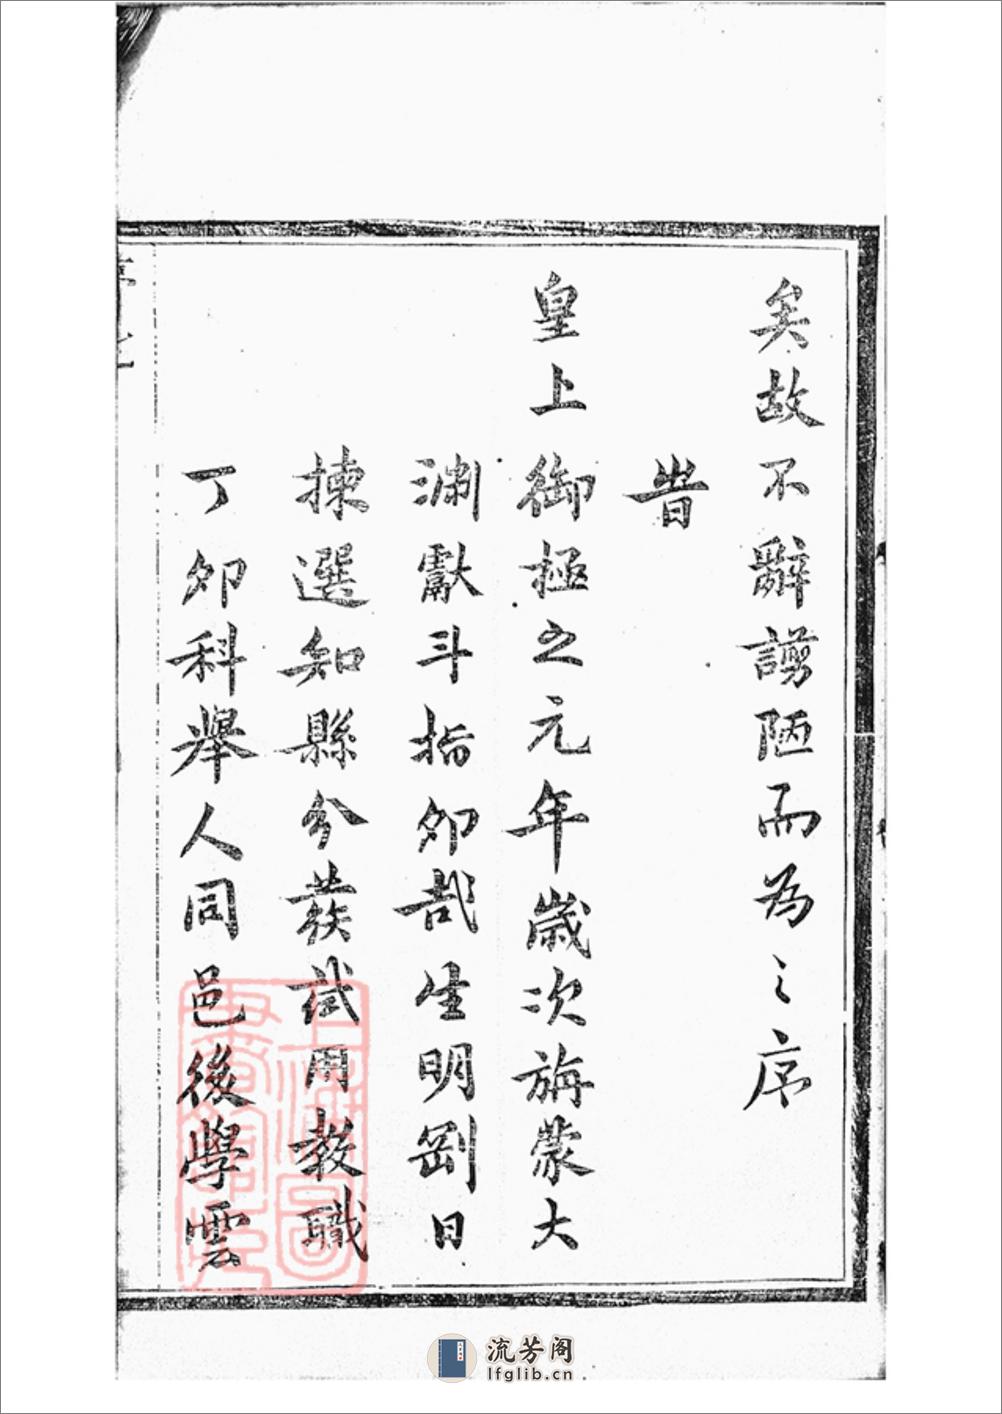 矣故不辭謭陋而為之序
旹
皇上御極之元年歲次旃蒙大
淵獻斗指卯哉生明剛日
揀選知縣分發試用教職
丁卯科舉人同邑後學雲
流芳阁
lfglib.cn